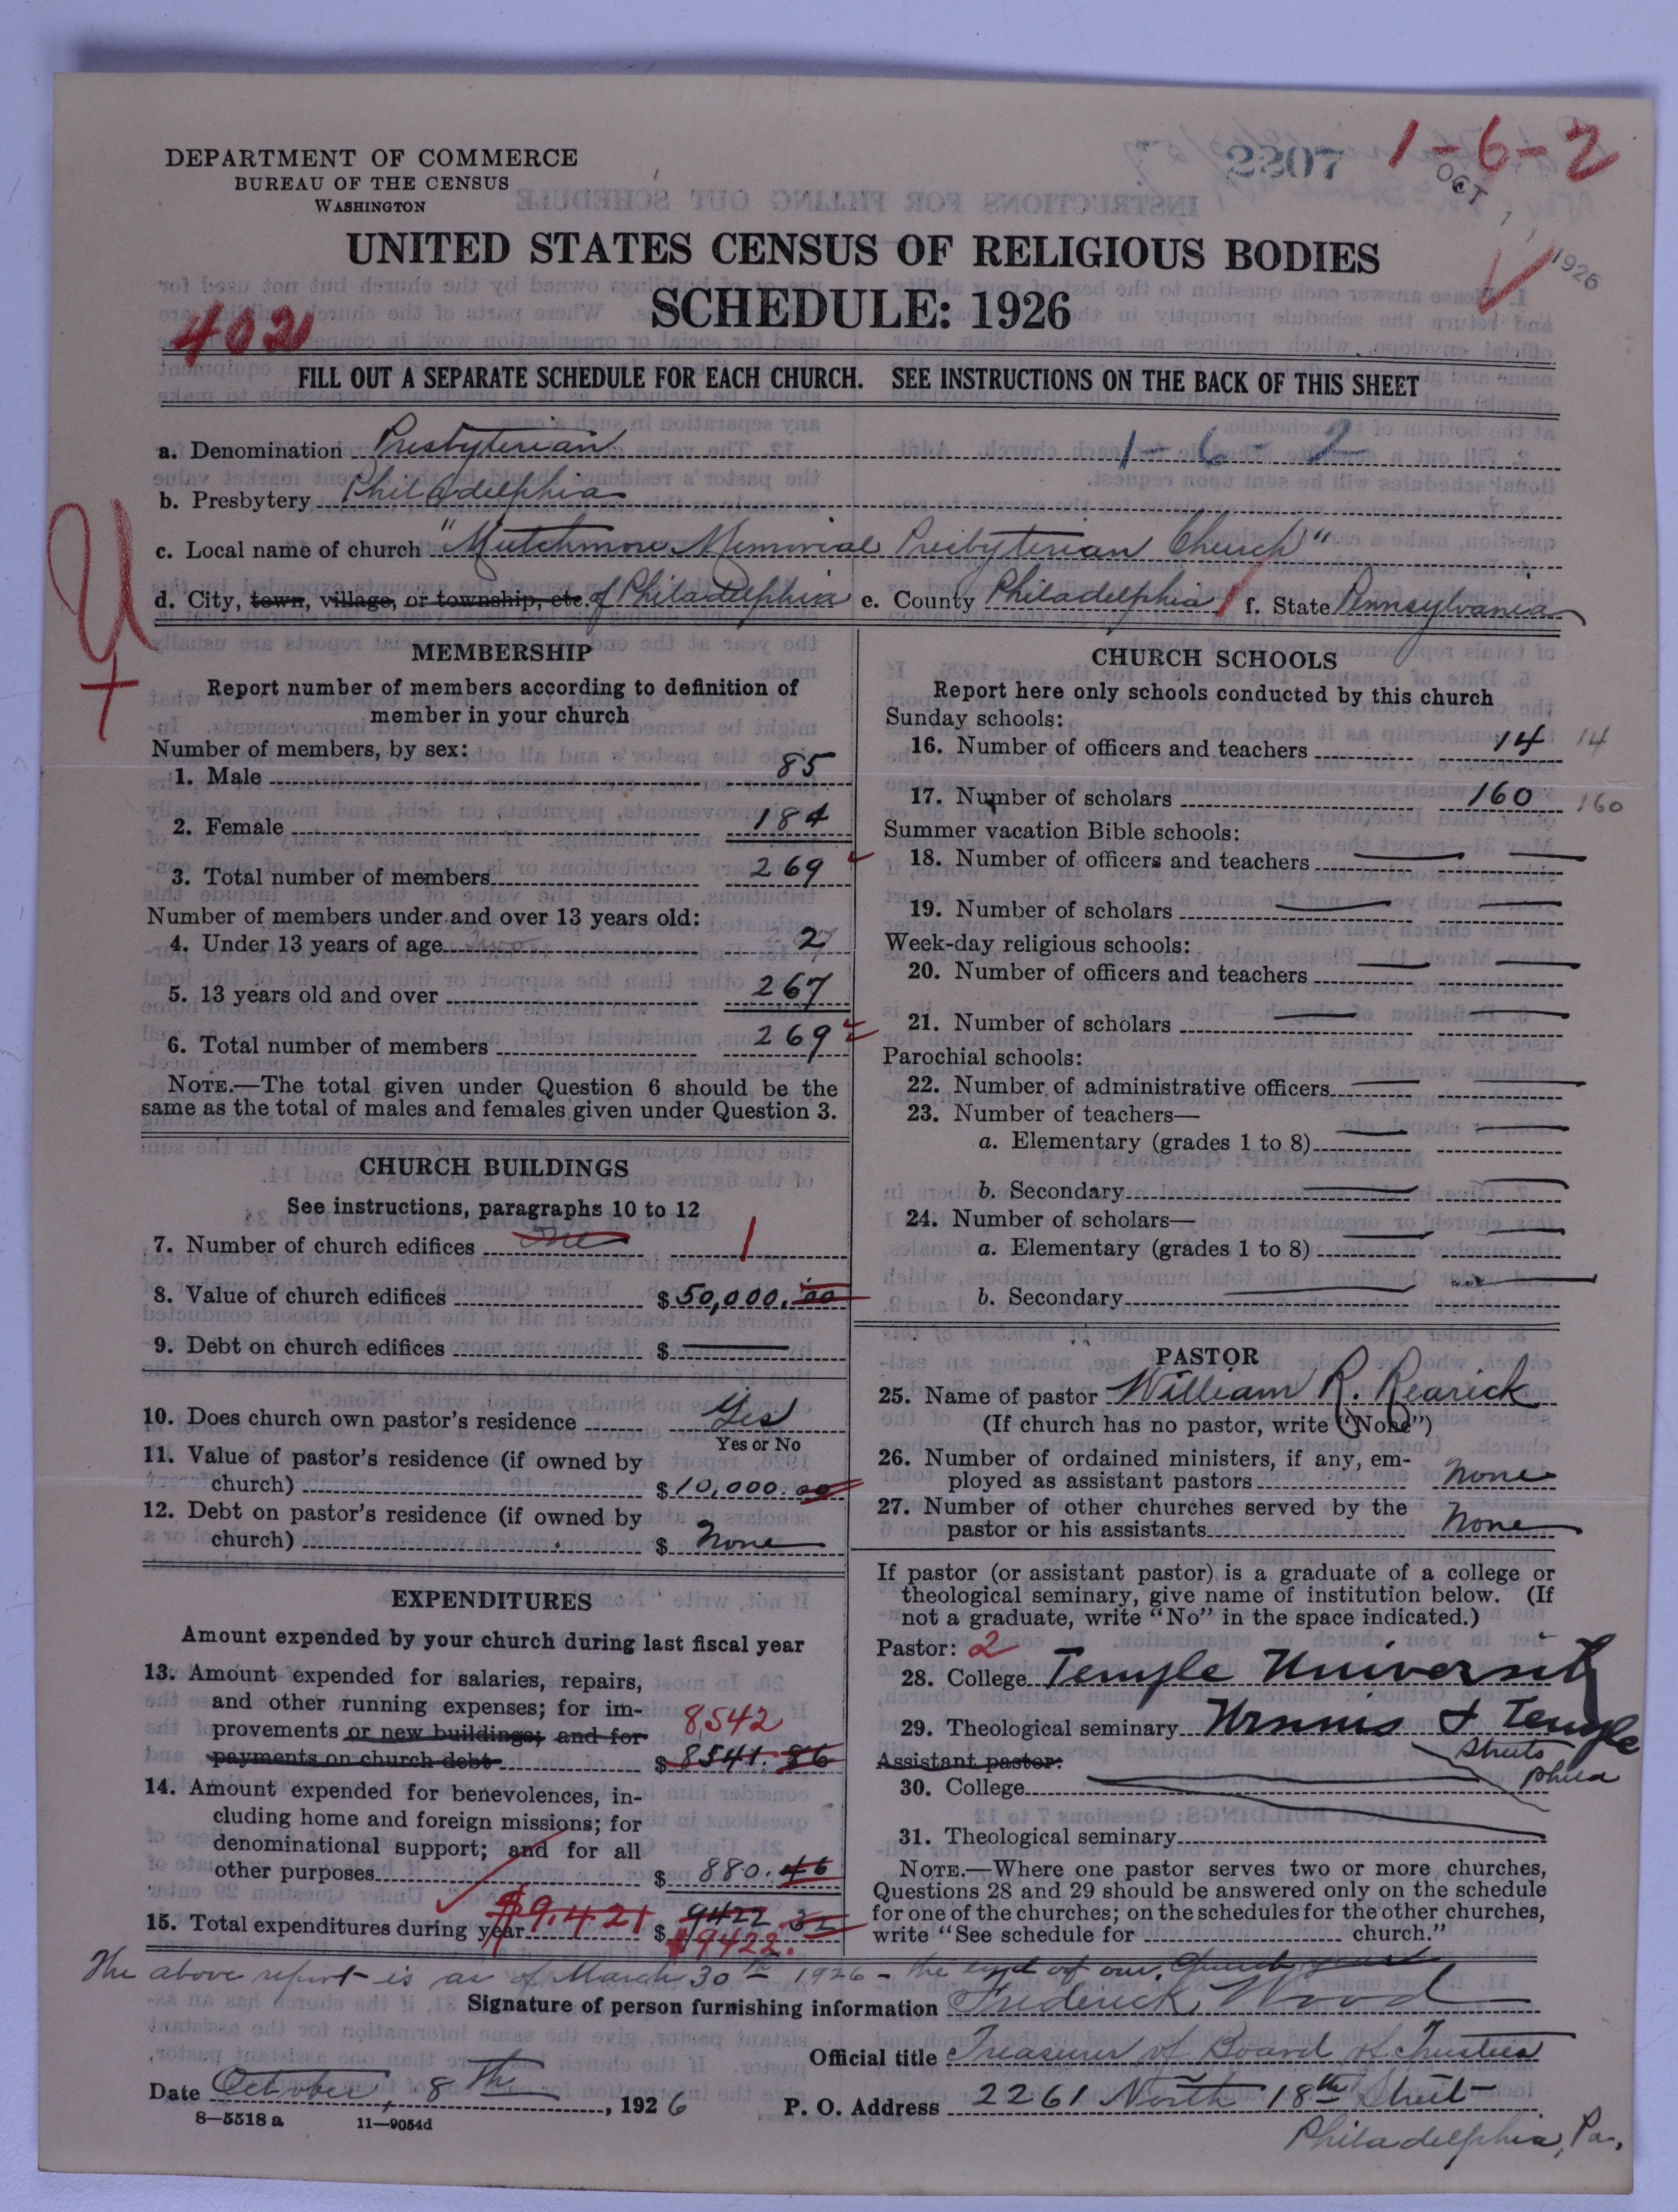 DEPARTMENT OF COMMERCE
BUREAU OF THE CENSUS
WASHINGTON
2307
1-6-2
OCT 1926
UNITED STATES CENSUS OF RELIGIOUS BODIES
SCHEDULE: 1926
402
FILL OUT A SEPARATE SCHEDULE FOR EACH CHURCH. SEE INSTRUCTIONS ON THE BACK OF THIS SHEET
a. Denomination Presbyterian 1-6-2
b. Presbytery Philadelphia
c. Local name of church "Mutchmore Memorial Presbyterian Church"
d. City, town, village, or township, etc. of Philadelphia e. County Philadelphia f. State Pennsylvania
MEMBERSHIP
Report number of members according to definition of
member in your church
Number of members, by sex:
1. Male 85
2. Female 184
3. Total number of members 269
Number of members under and over 13 years old:
4. Under 13 years of age two 2
5. 13 years old and over 267
6. Total number of members 269
NOTE.—The total given under Question 6 should be the
same as the total of males and females given under Question 3.
CHURCH BUILDINGS
See instructions, paragraphs 10 to 12
7. Number of church edifices One 1
8. Value of church edifices $ 50,000.00
9. Debt on church edifices $ —
10. Does church own pastor's residence Yes
Yes or No
11. Value of pastor's residence (if owned by
church) $ 10,000.00
12. Debt on pastor's residence (if owned by
church) $ None
EXPENDITURES
Amount expended by your church during last fiscal year
13. Amount expended for salaries, repairs,
and other running expenses; for im-
provements or new buildings; and for 8542
payments on church debt $ 8541.86
14. Amount expended for benevolences, in-
cluding home and foreign missions; for
denominational support; and for all
other purposes $ 880.46
15. Total expenditures during year $9,421 $ 9422.32
$9422.
CHURCH SCHOOLS
Report here only schools conducted by this church
Sunday schools:
16. Number of officers and teachers 14 14
17. Number of scholars 160 160
Summer vacation Bible schools:
18. Number of officers and teachers — —
19. Number of scholars — —
Week-day religious schools:
20. Number of officers and teachers — —
21. Number of scholars — —
Parochial schools:
22. Number of administrative officers — —
23. Number of teachers—
a. Elementary (grades 1 to 8) — —
b. Secondary — —
24. Number of scholars—
a. Elementary (grades 1 to 8) — —
b. Secondary — —
PASTOR
25. Name of pastor William R. Rearick
(If church has no pastor, write "None")
26. Number of ordained ministers, if any, em-
ployed as assistant pastors None
27. Number of other churches served by the
pastor or his assistants None
If pastor (or assistant pastor) is a graduate of a college or
theological seminary, give name of institution below. (If
not a graduate, write "No" in the space indicated.)
Pastor: 2
28. College Temple University
29. Theological seminary Ursinus & Temple
Assistant pastor: Phila
30. College
31. Theological seminary
NOTE.—Where one pastor serves two or more churches,
Questions 28 and 29 should be answered only on the schedule
for one of the churches; on the schedules for the other churches,
write "See schedule for church."
The above report is as of March 30th 1926 - the end of our Church year
Signature of person furnishing information Frederick Wood
Official title Treasurer of Board of Trustees
Date October 8th, 1926
P. O. Address 2261 North 18th Street
Philadelphia, Pa.
8—5518 a 11—9054d